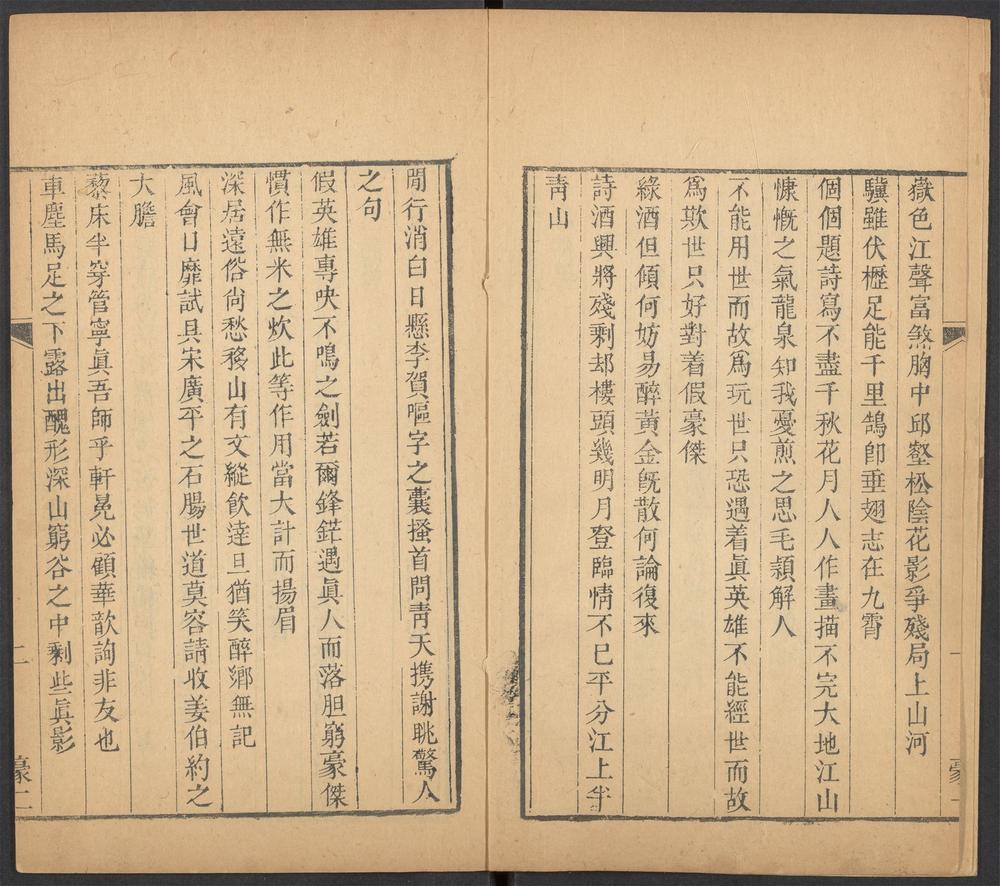 嶽色江聲富煞胸中邱壑松陰花影爭殘局上山河
驥雖伏櫪足能千里鵠卽垂翅志在九霄
個個題詩寫不盡千秋花月人人作畫描不完大地江山
慷慨之氣龍泉知我憂煎之思毛穎解人
不能用世而故爲玩世只恐遇着眞英雄不能經世而故
爲欺世只好對着假豪傑
綠酒但傾何妨易醉黃金旣散何論復來
詩酒興將殘剩却樓頭幾明月登臨情不已平分江上半
靑山
一
豪一
閒行消白日懸李賀嘔字之囊搔首問靑天攜謝眺驚人
之句
假英雄專吷不鳴之劍若爾鋒鋩遇眞人而落胆窮豪傑
慣作無米之炊此等作用當大計而揚眉
深居遠俗尙愁移山有文縱飮達旦猶笑醉鄉無記
風會日靡試具宋廣平之石腸世道莫容請收姜伯約之
大膽
藜床半穿管寧眞吾師乎軒冕必顧華歆詢非友也
車塵馬足之下露出醜形深山窮谷之中剩些眞影
二
豪二